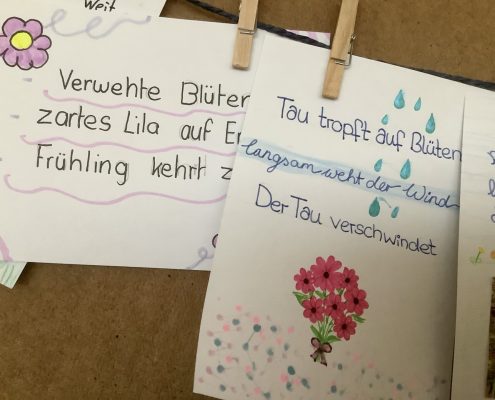 Weit
Verwehte Blüten
zartes Lila auf
Frühling kehrt
Tau tropft auf Blüten
langsam weht der Wind
Der Tau verschwindet